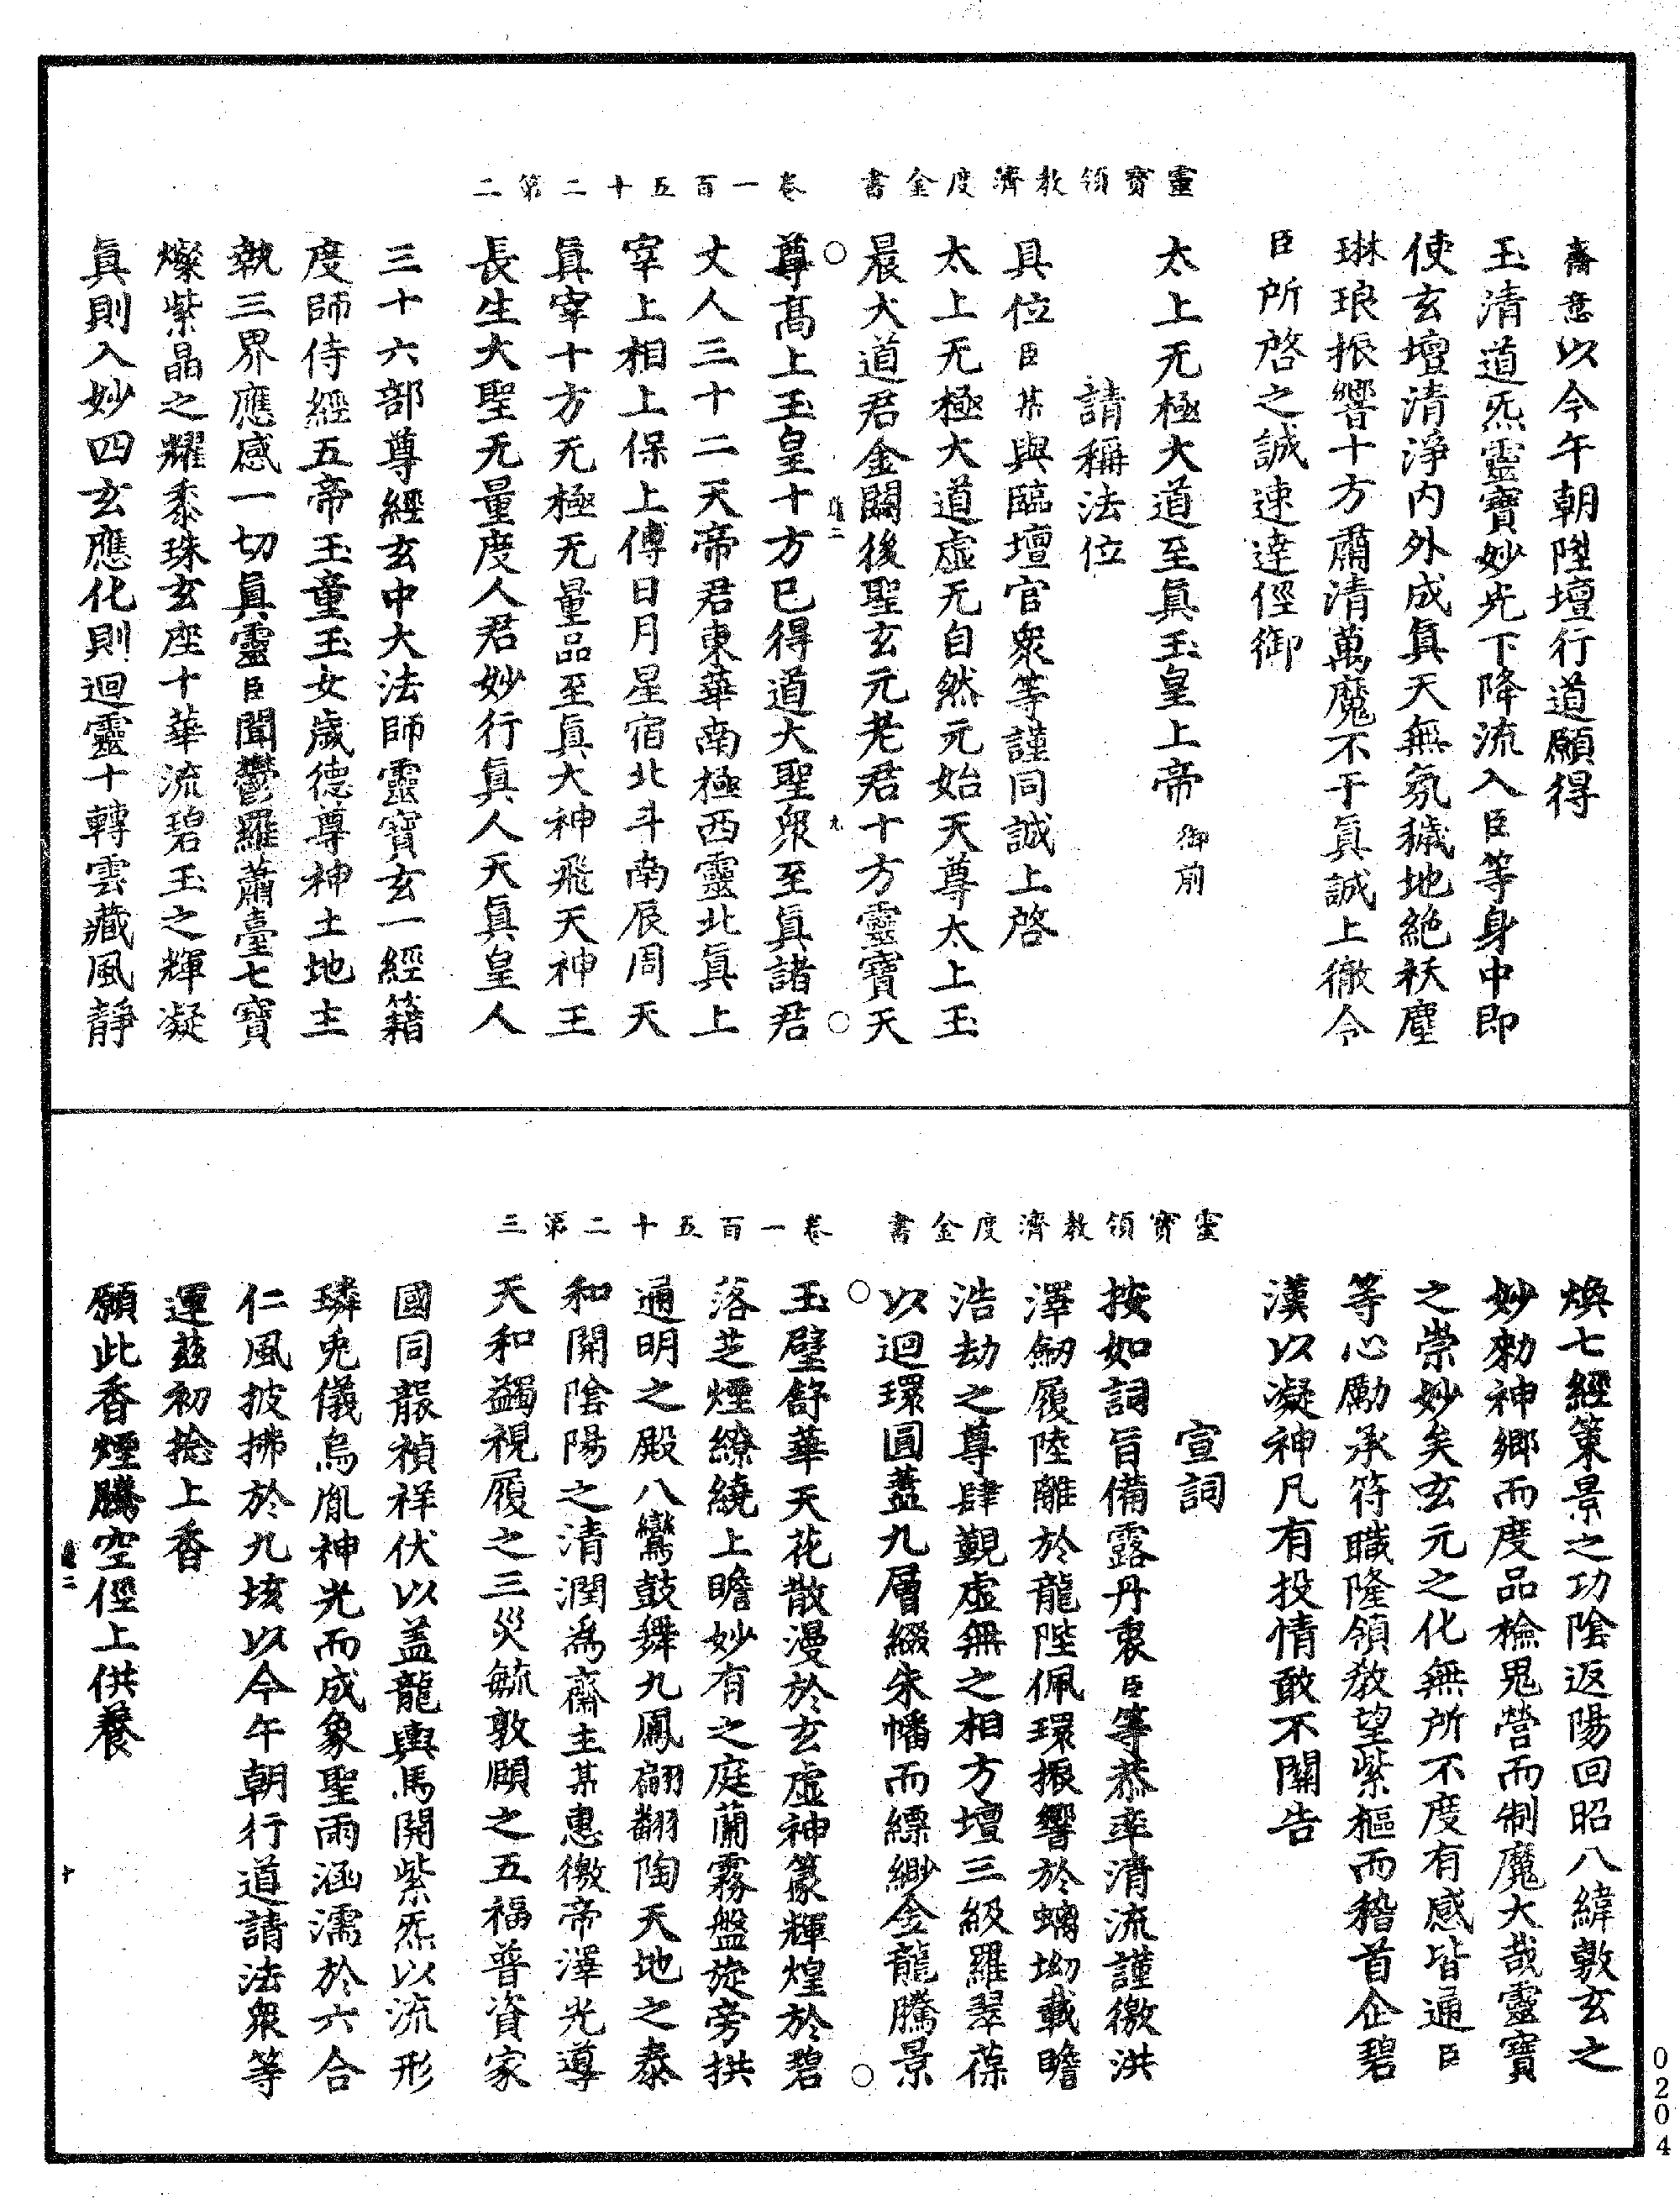 靈寶領教濟度金書　卷一百五十二第二
齋意以今午朝陞壇行道願得
玉清道炁靈寶妙光下降流入臣等身中即
使玄壇清淨内外成眞天無氛穢地絶袄塵
琳琅振響十方肅清萬魔不干眞誠上徹令
臣所啓之誠速達俓御
太上无極大道至眞玉皇上帝御前
請稱法位
具位臣某與臨壇官衆等謹同誠上啓
太上无極大道虛无自然元始天尊太上玉
晨大道君金闕後聖玄元老君十方靈寶天
尊髙上玉皇十方已得道大聖衆至眞諸君
丈人三十二天帝君東華南極西靈北眞上
宰上相上保上傅日月星宿北斗南辰周天
眞宰十方无極无量品至眞大神飛天神王
長生大聖无量度人君妙行眞人天眞皇人
三十六部尊經玄中大法師靈寶玄一經籍
度師侍經五帝玉童玉女歲德尊神土地主
執三界應感一切眞靈臣聞鬱羅蕭臺七寶
燦紫晶之耀黍珠玄座十華流碧玉之輝凝
眞則入妙四玄應化則迴靈十轉雲藏風靜
靈寶領教濟度金書　卷一百五十二第三
煥七經策景之功陰返陽回昭八緯敷玄之
妙勑神鄉而度品檢鬼營而制魔大哉靈寶
之崇妙矣玄元之化無所不度有感皆通臣
等心勵承符職隆領教望紫樞而稽首企碧
漢以凝神凡有投情敢不關告
宣詞
按如詞旨備露丹衷臣等恭率清流謹徼洪
澤劒履陸離於龍陛佩環振響於螭坳載瞻
浩劫之尊肆覲虛無之相方壇三級羅翠葆
以迴環圓蓋九層綴朱幡而縹緲金龍騰景
玉璧舒華天花散漫於玄虛神篆輝煌於碧
落芝煙繚繞上瞻妙有之庭蘭霧盤旋旁拱
通明之殿八鸞鼓舞九鳳翩翻陶天地之泰
和開陰陽之清潤爲齋主某惠徼帝澤光導
天和蠲視履之三災毓敦頤之五福普資家
國同賑禎祥伏以盖龍輿馬開紫炁以流形
璘兎儀烏胤神光而成象聖雨涵濡於六合
仁風披拂於九垓以今午朝行道請法衆等
運兹初捻上香
願此香煙騰空俓上供養
九
十
0204